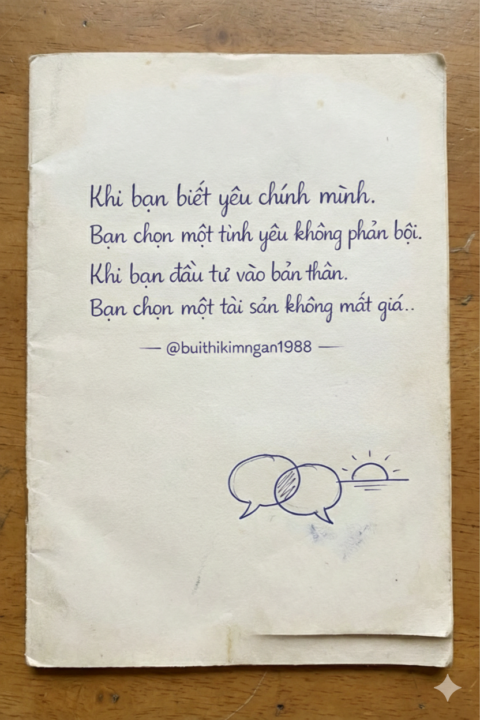 Khi bạn biết yêu chính mình.
Bạn chọn một tình yêu không phản bội.
Khi bạn đầu tư vào bản thân.
Bạn chọn một tài sản không mất giá..
— @buithikimngan1988 —